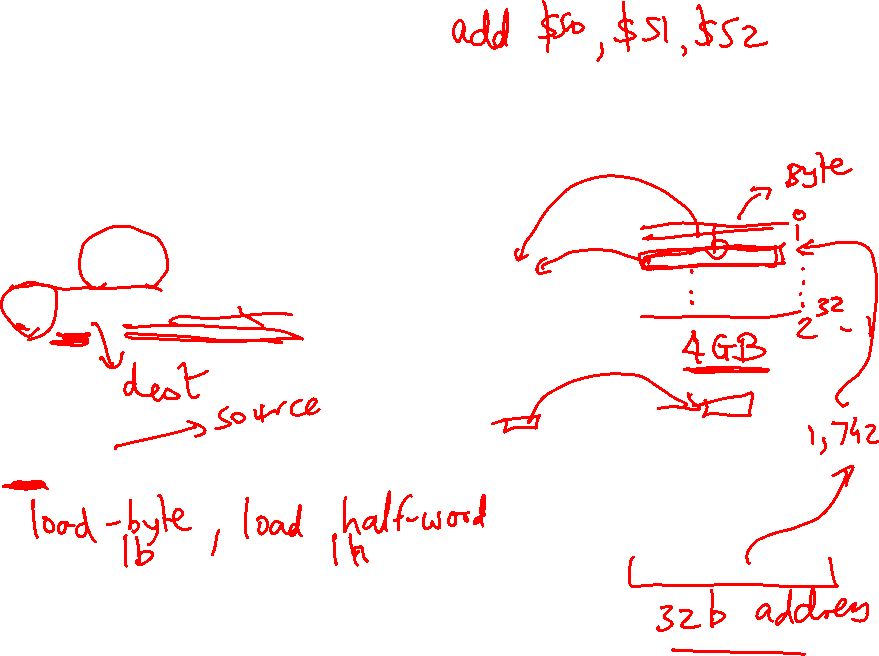 add $s0, $s1, $s2
Byte
0
1
2^32-1
4GB
dest
source
1,742
load-byte, load half-word
lb lh
32b address